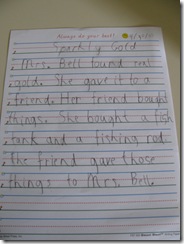 Always do your best!
Sparkly Gold
Mrs. Bell found real
gold. She gave it to a
friend. Her friend bought
things. She bought a fish
tank and a fishing rod.
the friend gave those
things to Mrs. Bell.